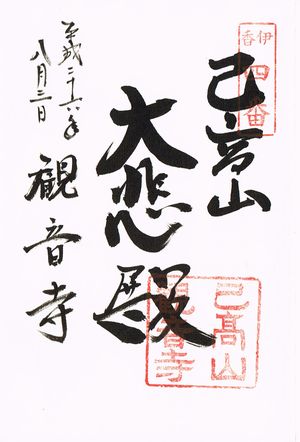 伊香
四番
己高山
大悲殿
平成二十六年
八月三日
観音寺
己高山
観音寺